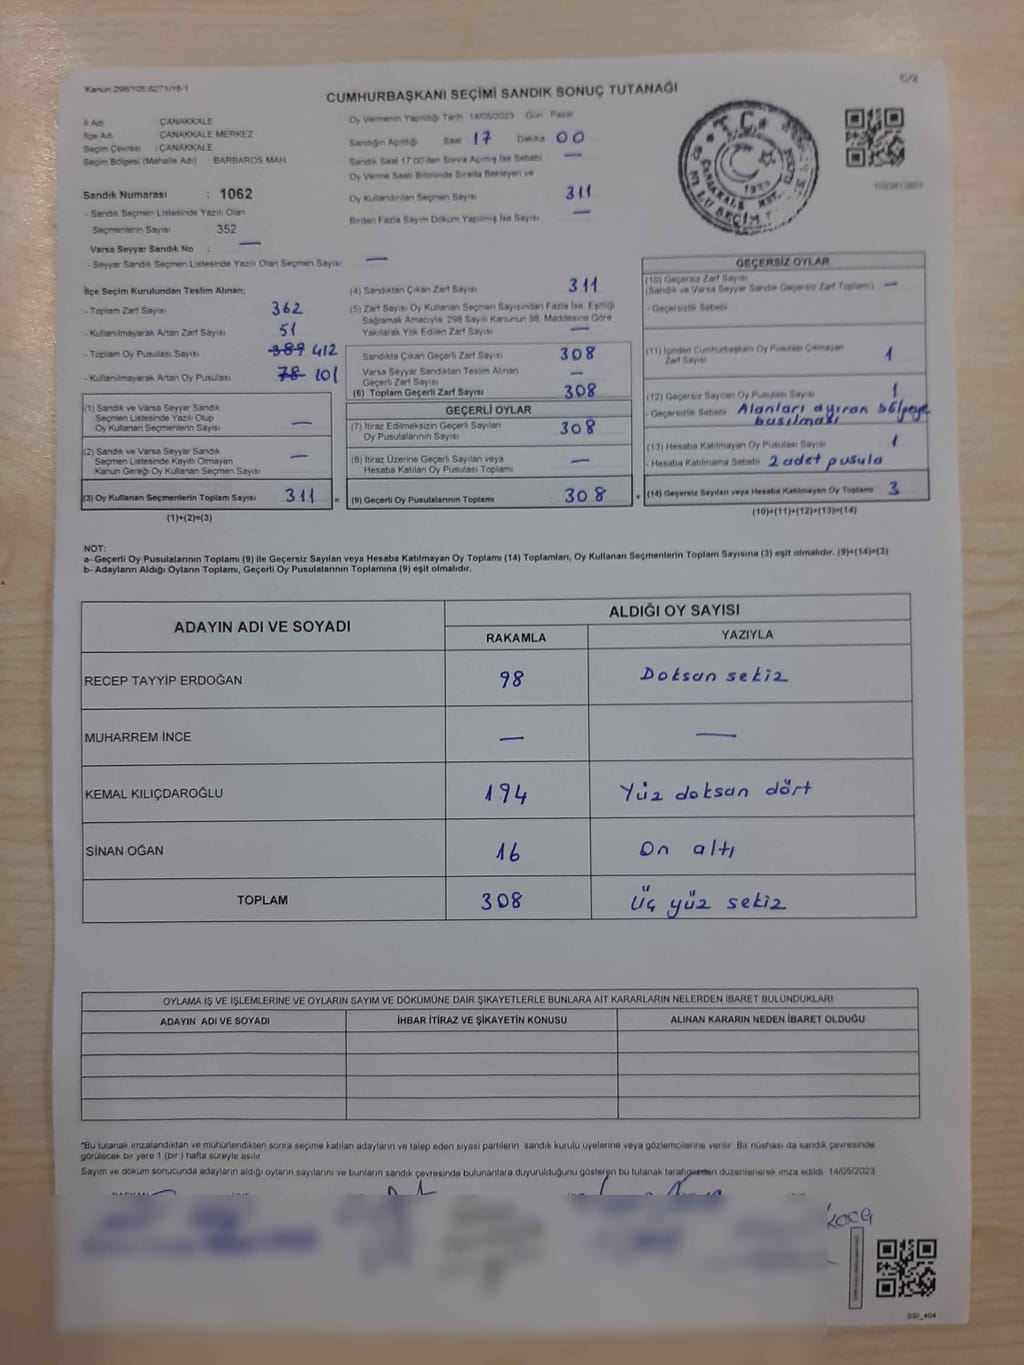 Kanun:298/105,6271/18-1
C/2
CUMHURBAŞKANI SEÇİMİ SANDIK SONUÇ TUTANAĞI
İl Adı ÇANAKKALE
İlçe Adı ÇANAKKALE MERKEZ
Seçim Çevresi : ÇANAKKALE
Seçim Bölgesi (Mahalle Adı) BARBAROS MAH
Sandık Numarası : 1062
- Sandık Seçmen Listesinde Yazılı Olan
Seçmenlerin Sayısı 352
Varsa Seyyar Sandık No : —
- Seyyar Sandık Seçmen Listesinde Yazılı Olan Seçmen Sayısı —
Oy Vermenin Yapıldığı Tarih 14/05/2023 Gün Pazar
Sandığın Açıldığı Saat 17 Dakika 00
Sandık Saat 17:00'den Sonra Açılmış İse Sebebi —
Oy Verme Saati Bitiminde Sırada Bekleyen ve
Oy Kullandırılan Seçmen Sayısı 311
Birden Fazla Sayım Döküm Yapılmış İse Sayısı —
T.C.
ÇANAKKALE
İlçe Seçim Kurulundan Teslim Alınan;
- Toplam Zarf Sayısı 362
- Kullanılmayarak Artan Zarf Sayısı 51
- Toplam Oy Pusulası Sayısı 389 412
- Kullanılmayarak Artan Oy Pusulası 78 101
(1) Sandık ve Varsa Seyyar Sandık
Seçmen Listesinde Yazılı Olup
Oy Kullanan Seçmenlerin Sayısı —
(2) Sandık ve Varsa Seyyar Sandık
Seçmen Listesinde Kayıtlı Olmayan
Kanun Gereği Oy Kullanan Seçmen Sayısı —
(3) Oy Kullanan Seçmenlerin Toplam Sayısı 311 =
(1)+(2)=(3)
(4) Sandıktan Çıkan Zarf Sayısı 311
(5) Zarf Sayısı Oy Kullanan Seçmen Sayısından Fazla İse, Eşitliği
Sağlamak Amacıyla, 298 Sayılı Kanunun 98. Maddesine Göre
Yakılarak Yok Edilen Zarf Sayısı —
Sandıkta Çıkan Geçerli Zarf Sayısı 308
Varsa Seyyar Sandıktan Teslim Alınan
Geçerli Zarf Sayısı —
(6) Toplam Geçerli Zarf Sayısı 308
GEÇERLİ OYLAR
(7) İtiraz Edilmeksizin Geçerli Sayılan
Oy Pusulalarının Sayısı 308
(8) İtiraz Üzerine Geçerli Sayılan veya
Hesaba Katılan Oy Pusulası Toplamı —
(9) Geçerli Oy Pusulalarının Toplamı 308 +
GEÇERSİZ OYLAR
(10) Geçersiz Zarf Sayısı
(Sandık ve Varsa Seyyar Sandık Geçersiz Zarf Toplamı) —
- Geçersizlik Sebebi
(11) İçinden Cumhurbaşkanı Oy Pusulası Çıkmayan
Zarf Sayısı 1
(12) Geçersiz Sayılan Oy Pusulası Sayısı 1
- Geçersizlik Sebebi Alanları ayıran bölgeye
basılması
(13) Hesaba Katılmayan Oy Pusulası Sayısı 1
- Hesaba Katılmama Sebebi 2 adet pusula
(14) Geçersiz Sayılan veya Hesaba Katılmayan Oy Toplamı 3
(10)+(11)+(12)+(13)=(14)
NOT:
a- Geçerli Oy Pusulalarının Toplamı (9) ile Geçersiz Sayılan veya Hesaba Katılmayan Oy Toplamı (14) Toplamları, Oy Kullanan Seçmenlerin Toplam Sayısına (3) eşit olmalıdır. (9)+(14)=(3)
b- Adayların Aldığı Oyların Toplamı, Geçerli Oy Pusulalarının Toplamına (9) eşit olmalıdır.
ADAYIN ADI VE SOYADI ALDIĞI OY SAYISI
RAKAMLA YAZIYLA
RECEP TAYYİP ERDOĞAN 98 Doksan sekiz
MUHARREM İNCE — —
KEMAL KILIÇDAROĞLU 194 Yüz doksan dört
SİNAN OĞAN 16 On altı
TOPLAM 308 üç yüz sekiz
OYLAMA İŞ VE İŞLEMLERİNE VE OYLARIN SAYIM VE DÖKÜMÜNE DAİR ŞİKAYETLERLE BUNLARA AİT KARARLARIN NELERDEN İBARET BULUNDUKLARI
ADAYIN ADI VE SOYADI İHBAR İTİRAZ VE ŞİKAYETİN KONUSU ALINAN KARARIN NEDEN İBARET OLDUĞU
*Bu tutanak imzalandıktan ve mühürlendikten sonra seçime katılan adayların ve talep eden siyasi partilerin sandık kurulu üyelerine veya gözlemcilerine verilir. Bir nüshası da sandık çevresinde
görülecek bir yere 1 (bir ) hafta süreyle asılır.
Sayım ve döküm sonucunda adayların aldığı oyların sayılarını ve bunların sandık çevresinde bulunanlara duyurulduğunu gösteren bu tutanak tarafımızdan düzenlenerek imza edildi. 14/05/2023
SSI_404